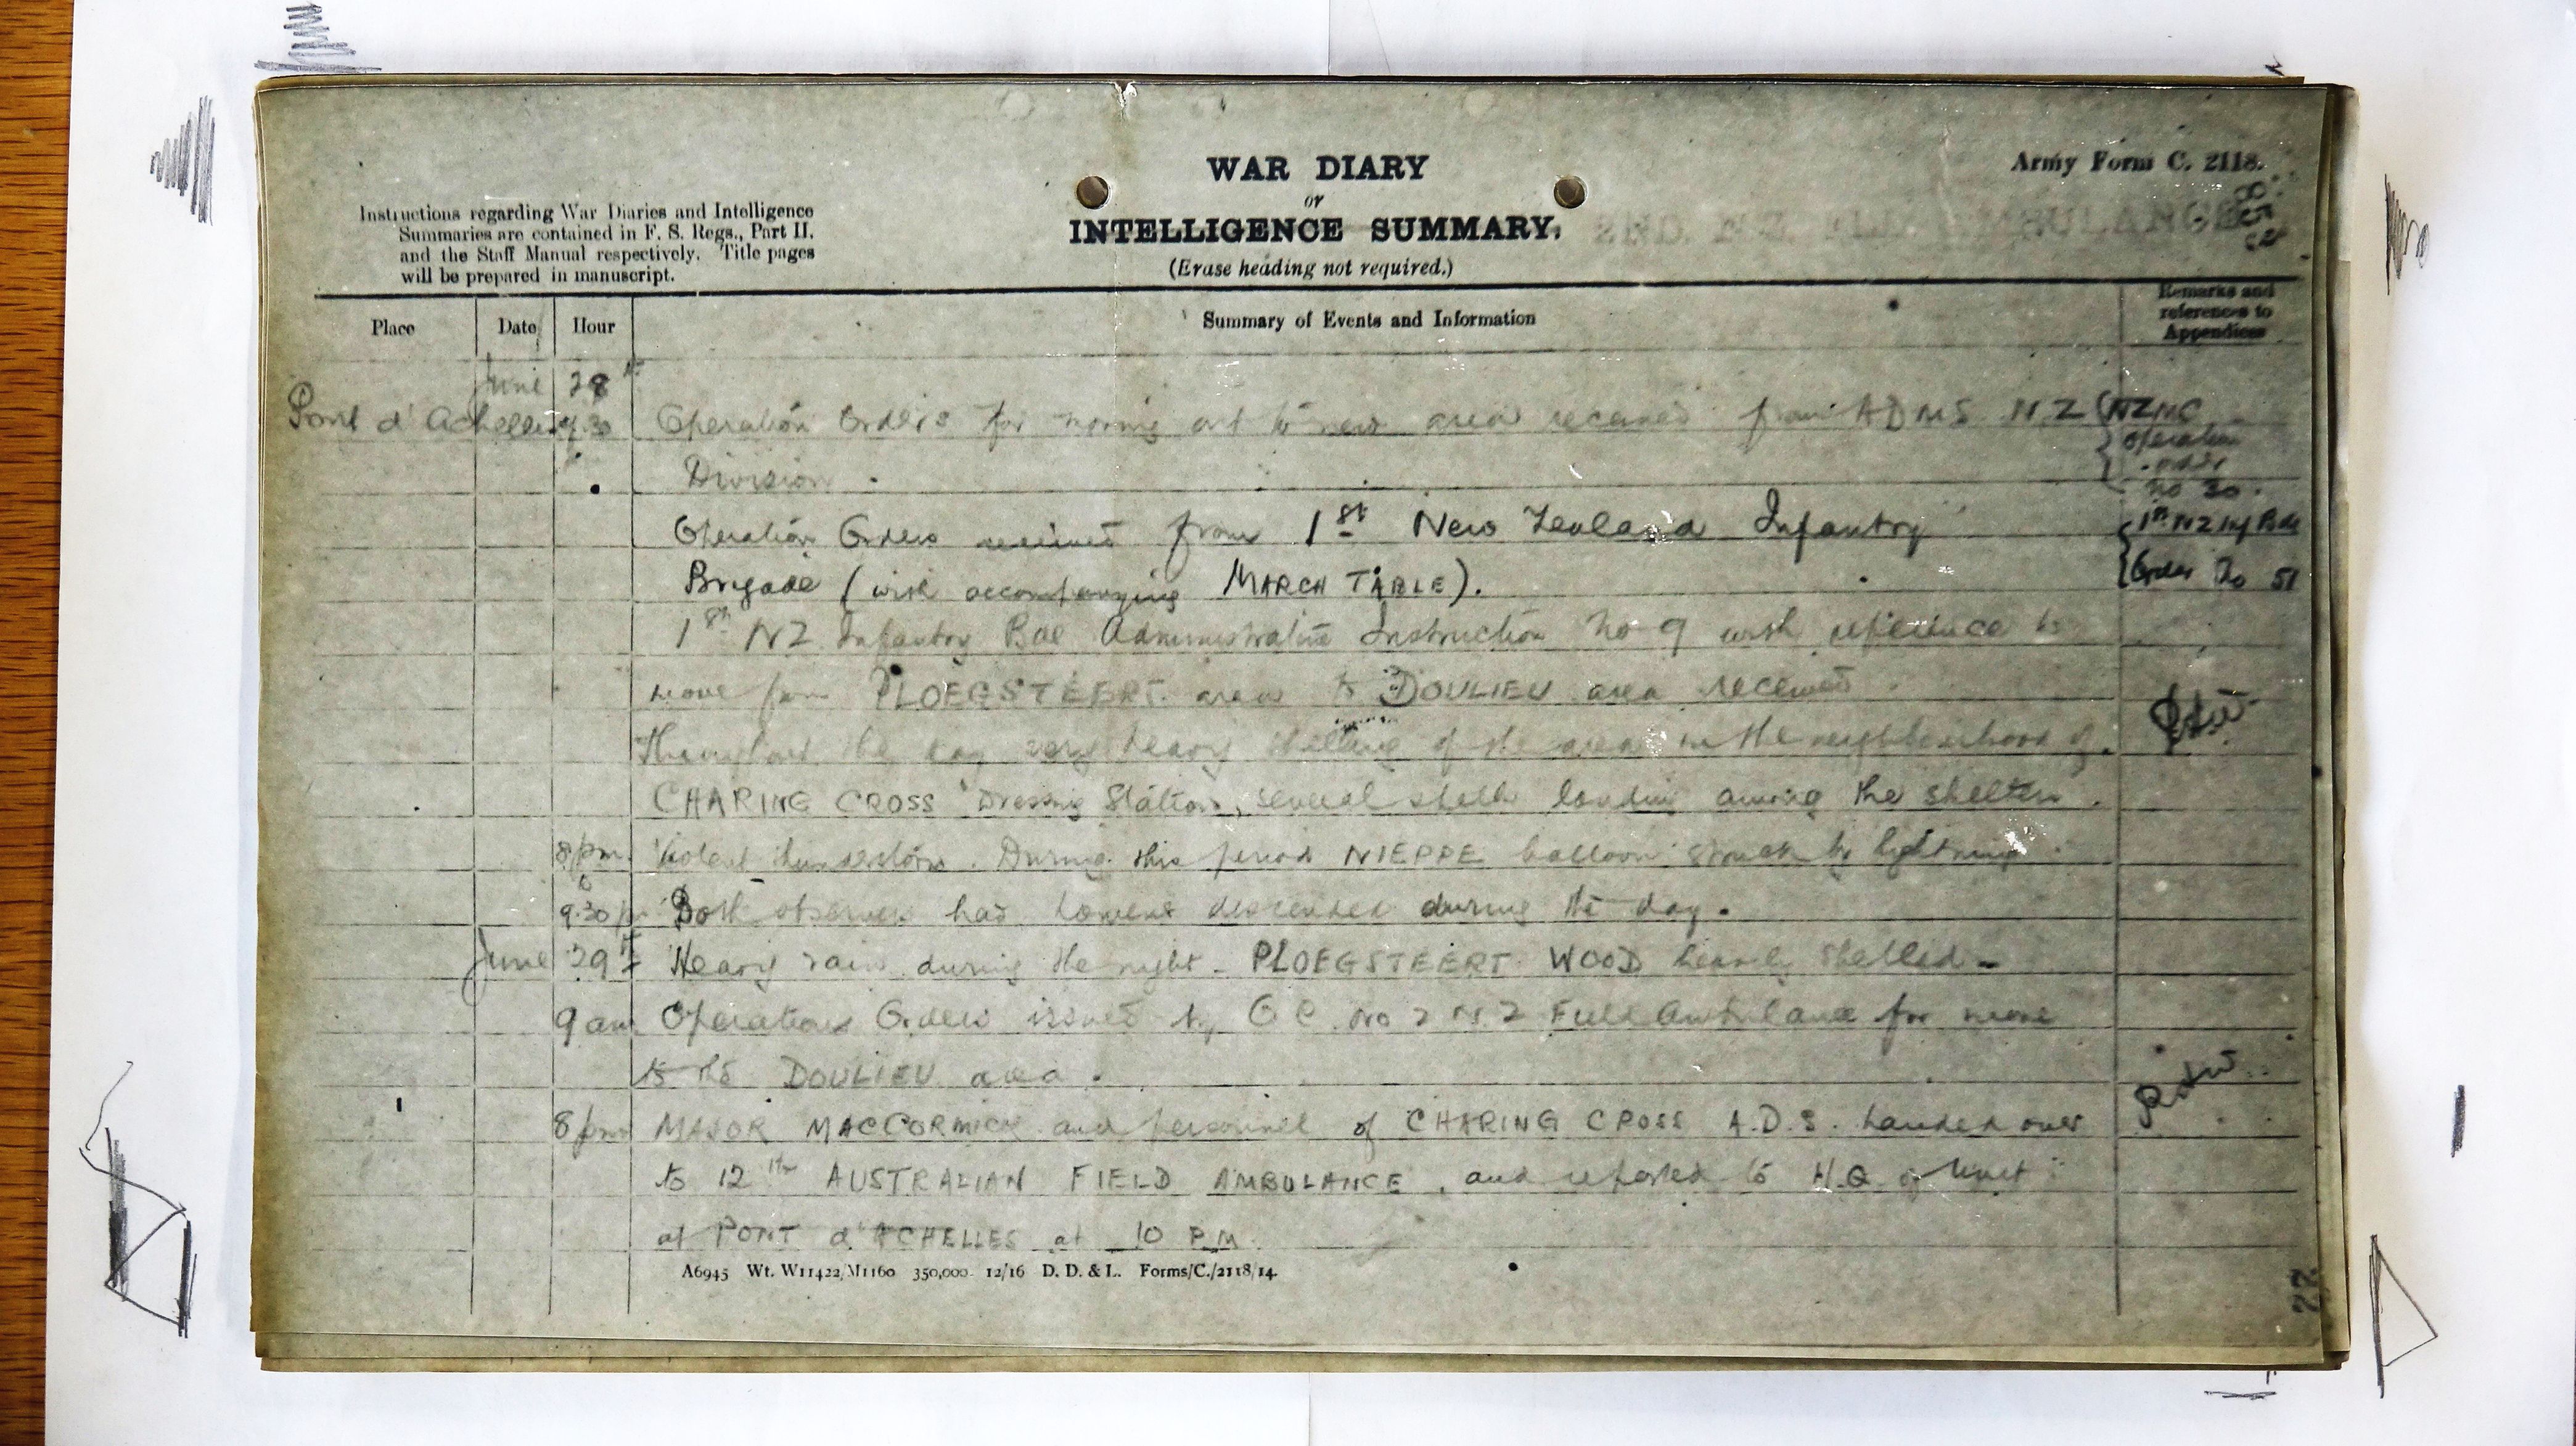 WAR DIARY
or
INTELLIGENCE SUMMARY.
(Erase heading not required.)
Army Form C. 2118.
Instructions regarding War Diaries and Intelligence
Summaries are contained in F. S. Regs., Part II.
and the Staff Manual respectively. Title pages
will be prepared in manuscript.
Place Date Hour Summary of Events and Information Remarks and
references to
Appendices
June 28th
Pont d'Achelles 4.30 Operation Orders for moving out to new area received from ADMS NZ (NZMC
Division. Operation
order
No 30.
Operation Orders received from 1st New Zealand Infantry 1st NZ Inf Bde
Brigade (with accompanying MARCH TABLE). Order No 51
1st NZ Infantry Bde Administrative Instruction No 9 with reference to
move from PLOEGSTEERT area to DOULIEU area received.
Throughout the day very heavy shelling of the area in the neighbourhood of
CHARING CROSS Dressing Station, several shells landing among the shelters.
8 pm Violent thunderstorm. During this period NIEPPE balloon struck by lightning.
to
9.30 pm Both observers had however descended during the day.
June 29th Heavy rain during the night - PLOEGSTEERT WOOD heavily shelled -
9 am Operation Orders issued by OC No 2 N.Z Field Ambulance for move
to the DOULIEU area.
8 pm MAJOR MACCORMICK and personnel of CHARING CROSS A.D.S. handed over
to 12th AUSTRALIAN FIELD AMBULANCE, and reported to H.Q. of Unit
at PONT d'ACHELLES at 10 P.M.
A6945 Wt. W11422/M1160 350,000 12/16 D. D. & L. Forms/C./2118/14.
22